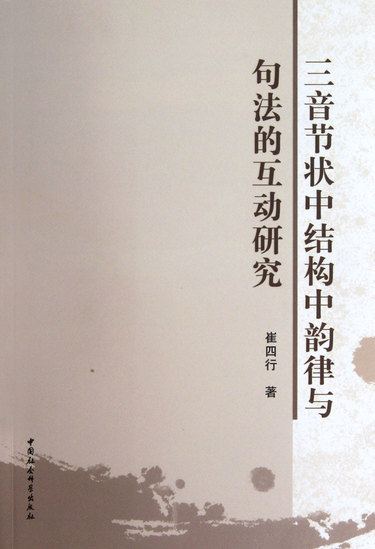 三音节状中结构中韵律与
句法的互动研究
崔四行 著
中国社会科学出版社